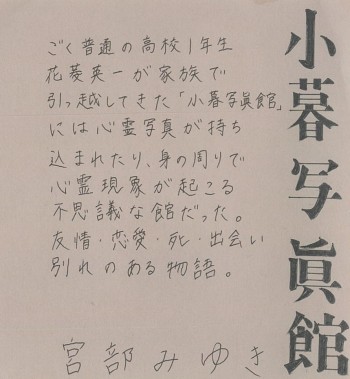 小暮写眞館
ごく普通の高校1年生
花菱英一が家族で
引っ越してきた「小暮写眞館」
には心霊写真が持ち
込まれたり、身の周りで
心霊現象が起こる
不思議な館だった。
友情・恋愛・死・出会い
別れのある物語。
宮部みゆき